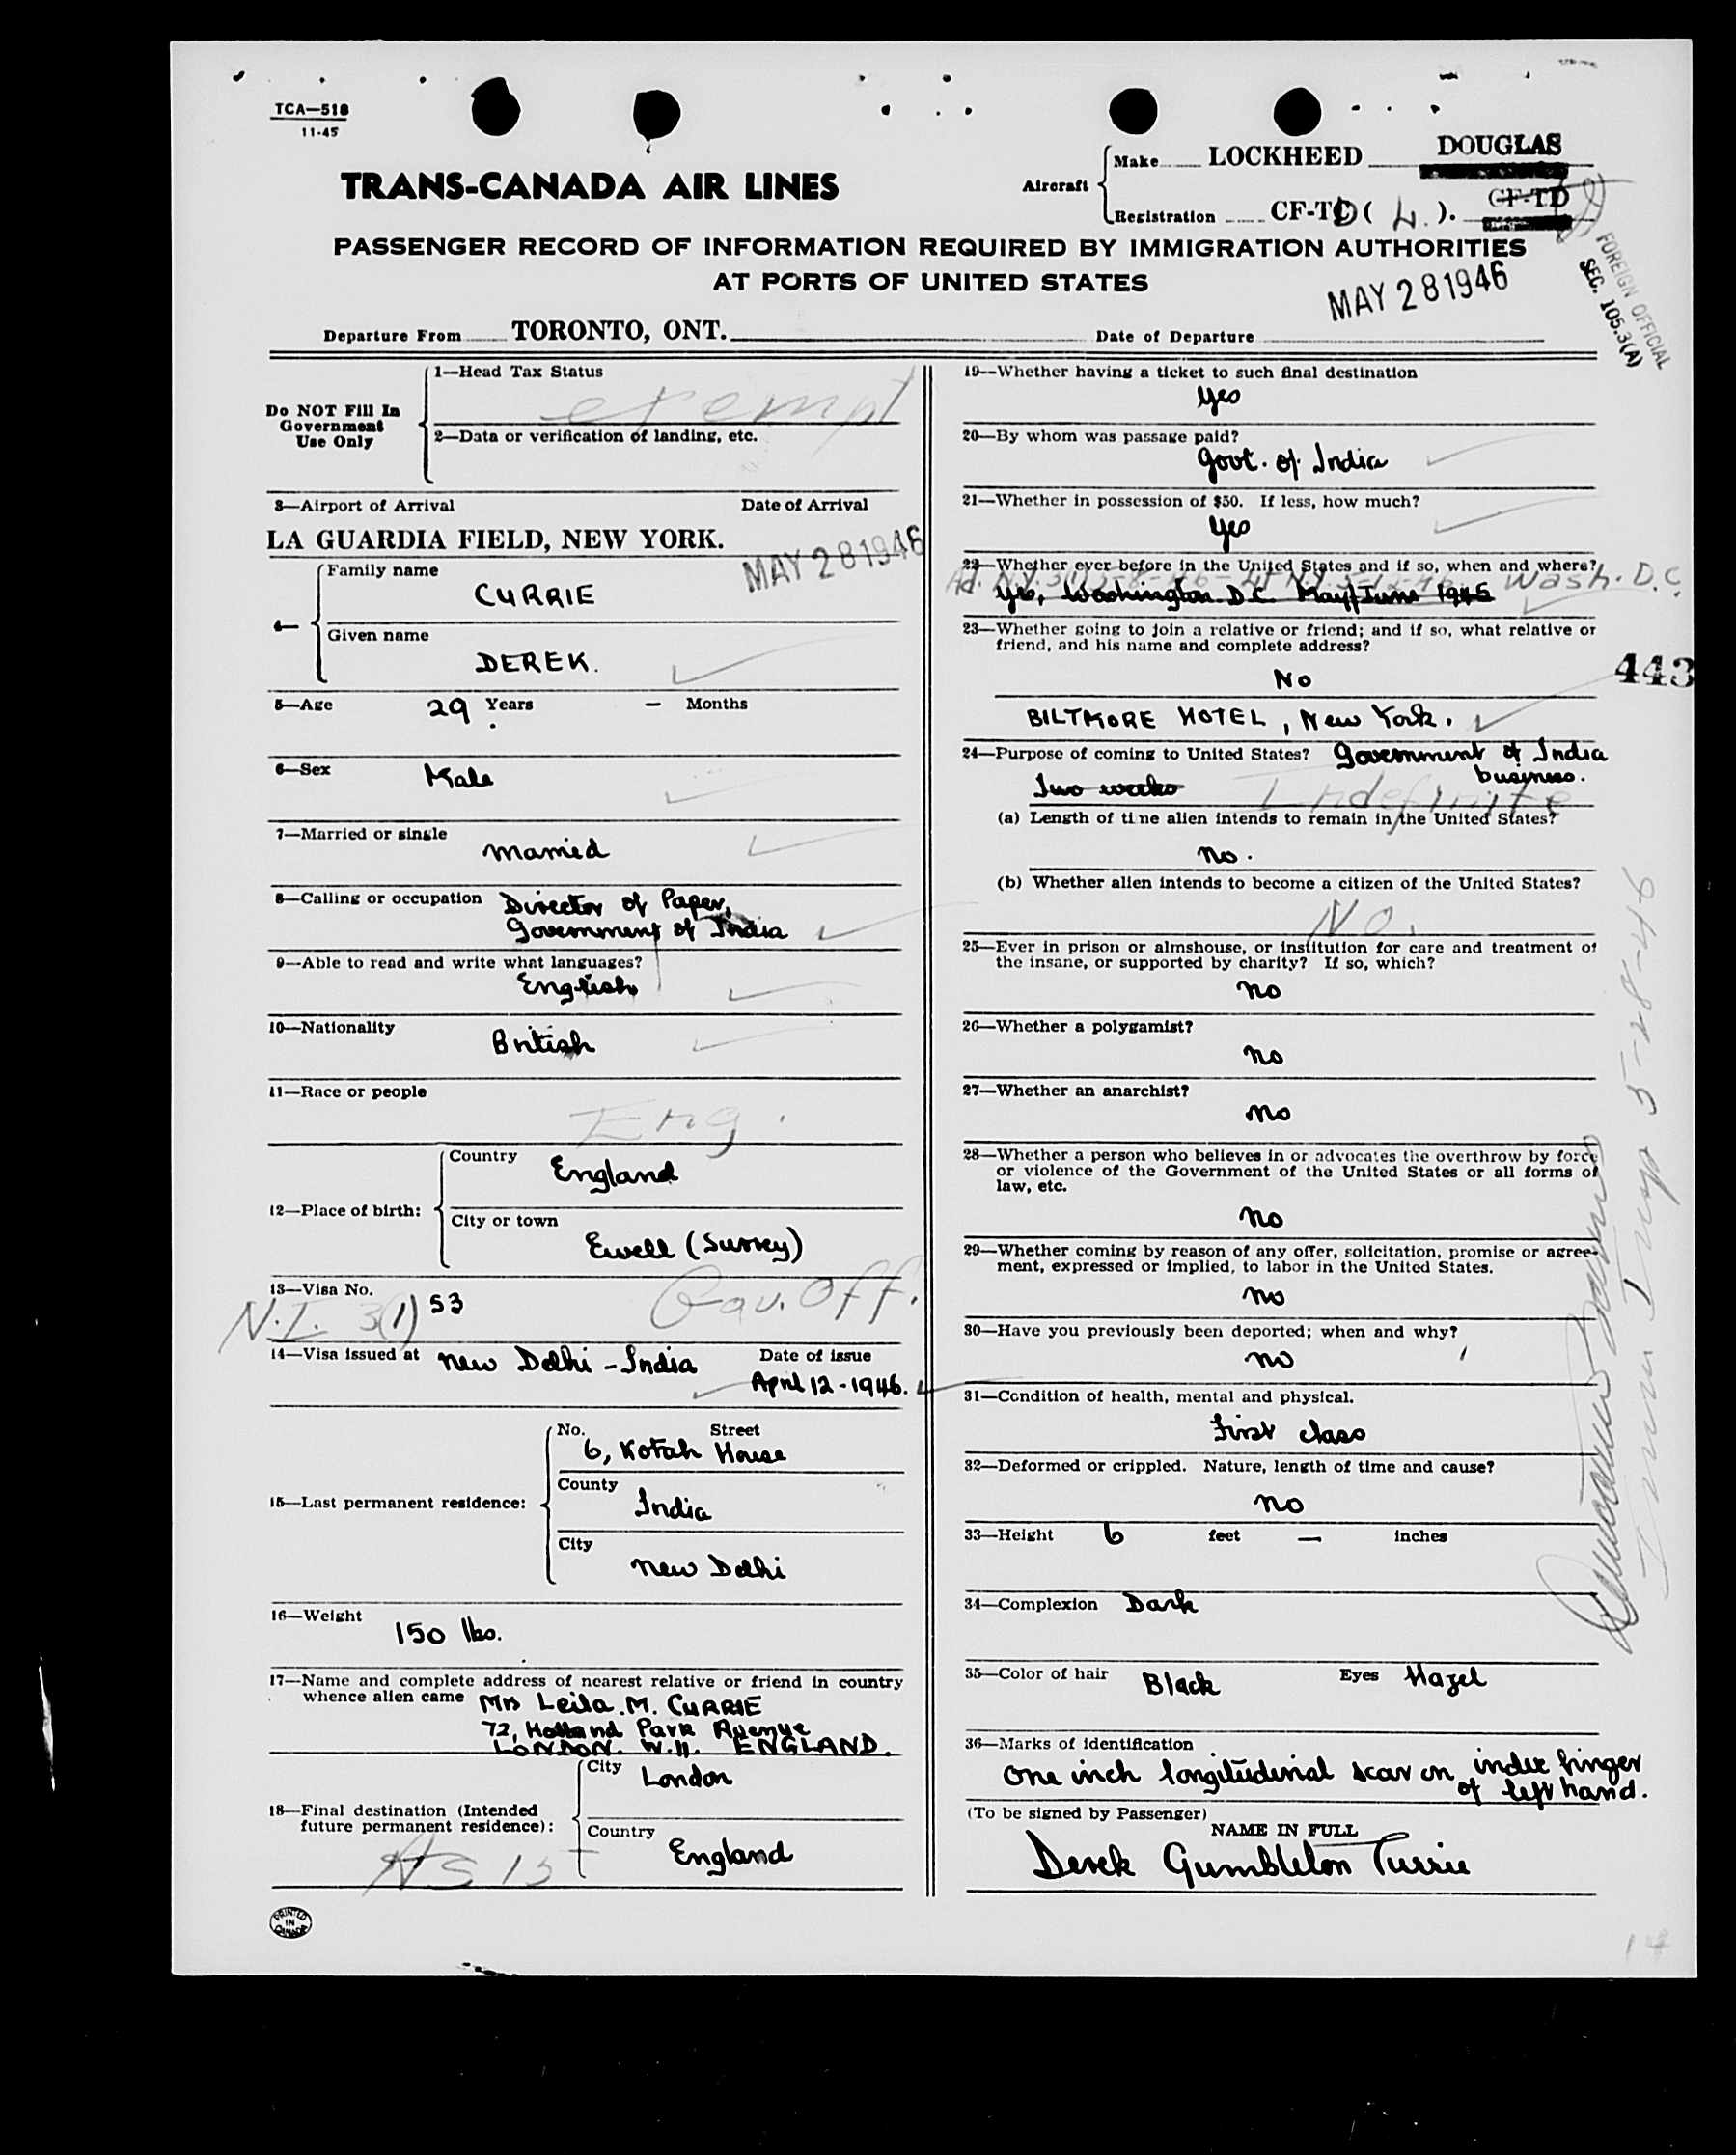 TCA—518
11-45
TRANS-CANADA AIR LINES
Aircraft
Make LOCKHEED DOUGLAS
Registration CF-TD (4). CF-TD
PASSENGER RECORD OF INFORMATION REQUIRED BY IMMIGRATION AUTHORITIES
AT PORTS OF UNITED STATES
MAY 28 1946
FOREIGN OFFICIAL
SEC. 105.3(A)
Departure From TORONTO, ONT.
Date of Departure
Do NOT Fill In
Government
Use Only
1—Head Tax Status
exempt
2—Data or verification of landing, etc.
3—Airport of Arrival Date of Arrival
LA GUARDIA FIELD, NEW YORK.
MAY 28 1946
4—
Family name
CURRIE
Given name
DEREK.
5—Age 29 Years — Months
6—Sex Male
7—Married or single
Married
8—Calling or occupation Director of Paper,
Government of India
9—Able to read and write what languages?
English
10—Nationality
British
11—Race or people
Eng.
12—Place of birth:
Country
England
City or town
Ewell (Surrey)
13—Visa No.
N.I. 3(1) 53
Gov. Off.
14—Visa issued at New Delhi - India Date of issue
April 12 - 1946.
15—Last permanent residence:
No. Street
6, Kotah House
County
India
City
New Delhi
16—Weight
150 lbs.
17—Name and complete address of nearest relative or friend in country
whence alien came Mrs Leila. M. CURRIE
72, Holland Park Avenue
LONDON. W.11. ENGLAND.
18—Final destination (Intended
future permanent residence):
City
London
Country
England
PRINTED
IN
CANADA
19—Whether having a ticket to such final destination
Yes
20—By whom was passage paid?
Govt. of India
21—Whether in possession of $50. If less, how much?
Yes
22—Whether ever before in the United States and if so, when and where?
Wash. D.C.
Yes, Washington D.C. May/June 1945
23—Whether going to join a relative or friend; and if so, what relative or
friend, and his name and complete address?
No
443
BILTMORE HOTEL, New York.
24—Purpose of coming to United States? Government of India
business.
Two weeks Indefinite
(a) Length of time alien intends to remain in the United States?
No.
(b) Whether alien intends to become a citizen of the United States?
NO.
25—Ever in prison or almshouse, or institution for care and treatment of
the insane, or supported by charity? If so, which?
No
26—Whether a polygamist?
No
27—Whether an anarchist?
No
28—Whether a person who believes in or advocates the overthrow by force
or violence of the Government of the United States or all forms of
law, etc.
No
29—Whether coming by reason of any offer, solicitation, promise or agree-
ment, expressed or implied, to labor in the United States.
No
30—Have you previously been deported; when and why?
No
31—Condition of health, mental and physical.
First class
32—Deformed or crippled. Nature, length of time and cause?
No
33—Height 6 feet — inches
34—Complexion Dark
35—Color of hair Black Eyes Hazel
36—Marks of identification
One inch longitudinal scar on index finger
of left hand.
(To be signed by Passenger)
NAME IN FULL
Derek Gumbleton Currie
5-28-46
14